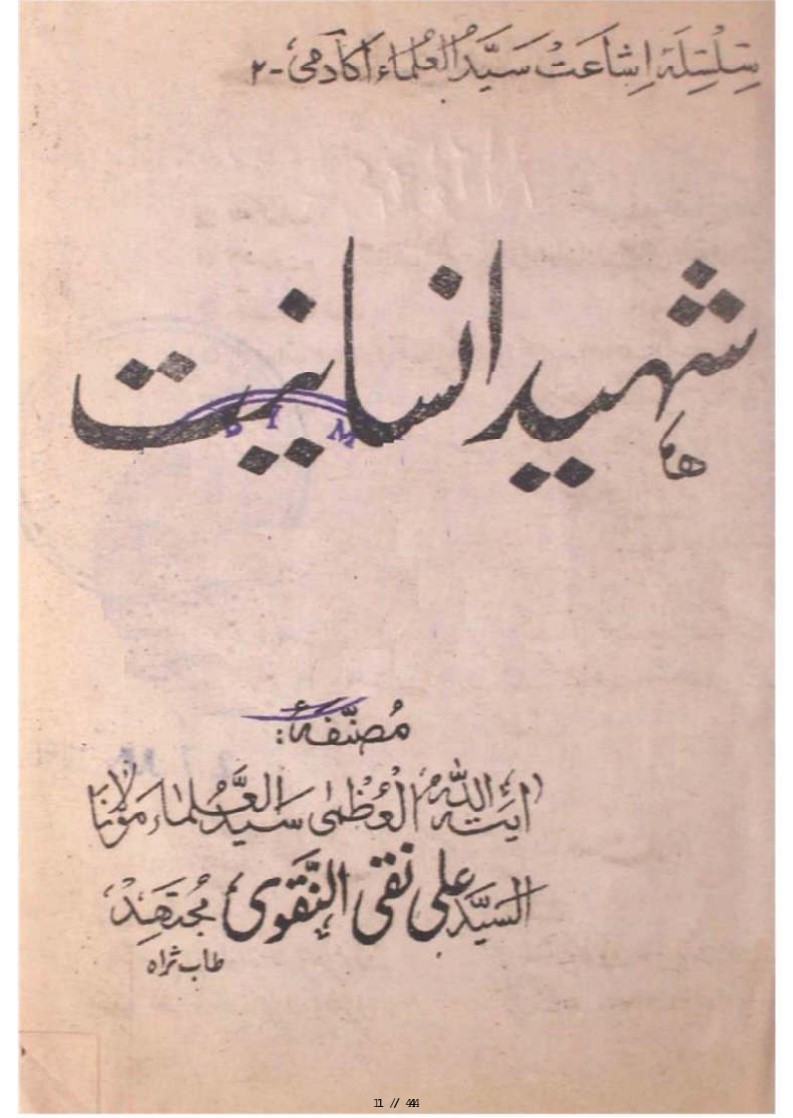 سِلْسِلَۂ اِشَاعَتْ سَیَّدُ العُلماء اکادمی - ۲
شہید انسانیت
مُصنّفہٗ:
آیتہ اللّٰہ العُظمٰی سیّدُ العُلماء مَولانا
السیّد علی نقی النّقوی مُجتَہِدْ
طاب ثراہ
D I M
11 // 444